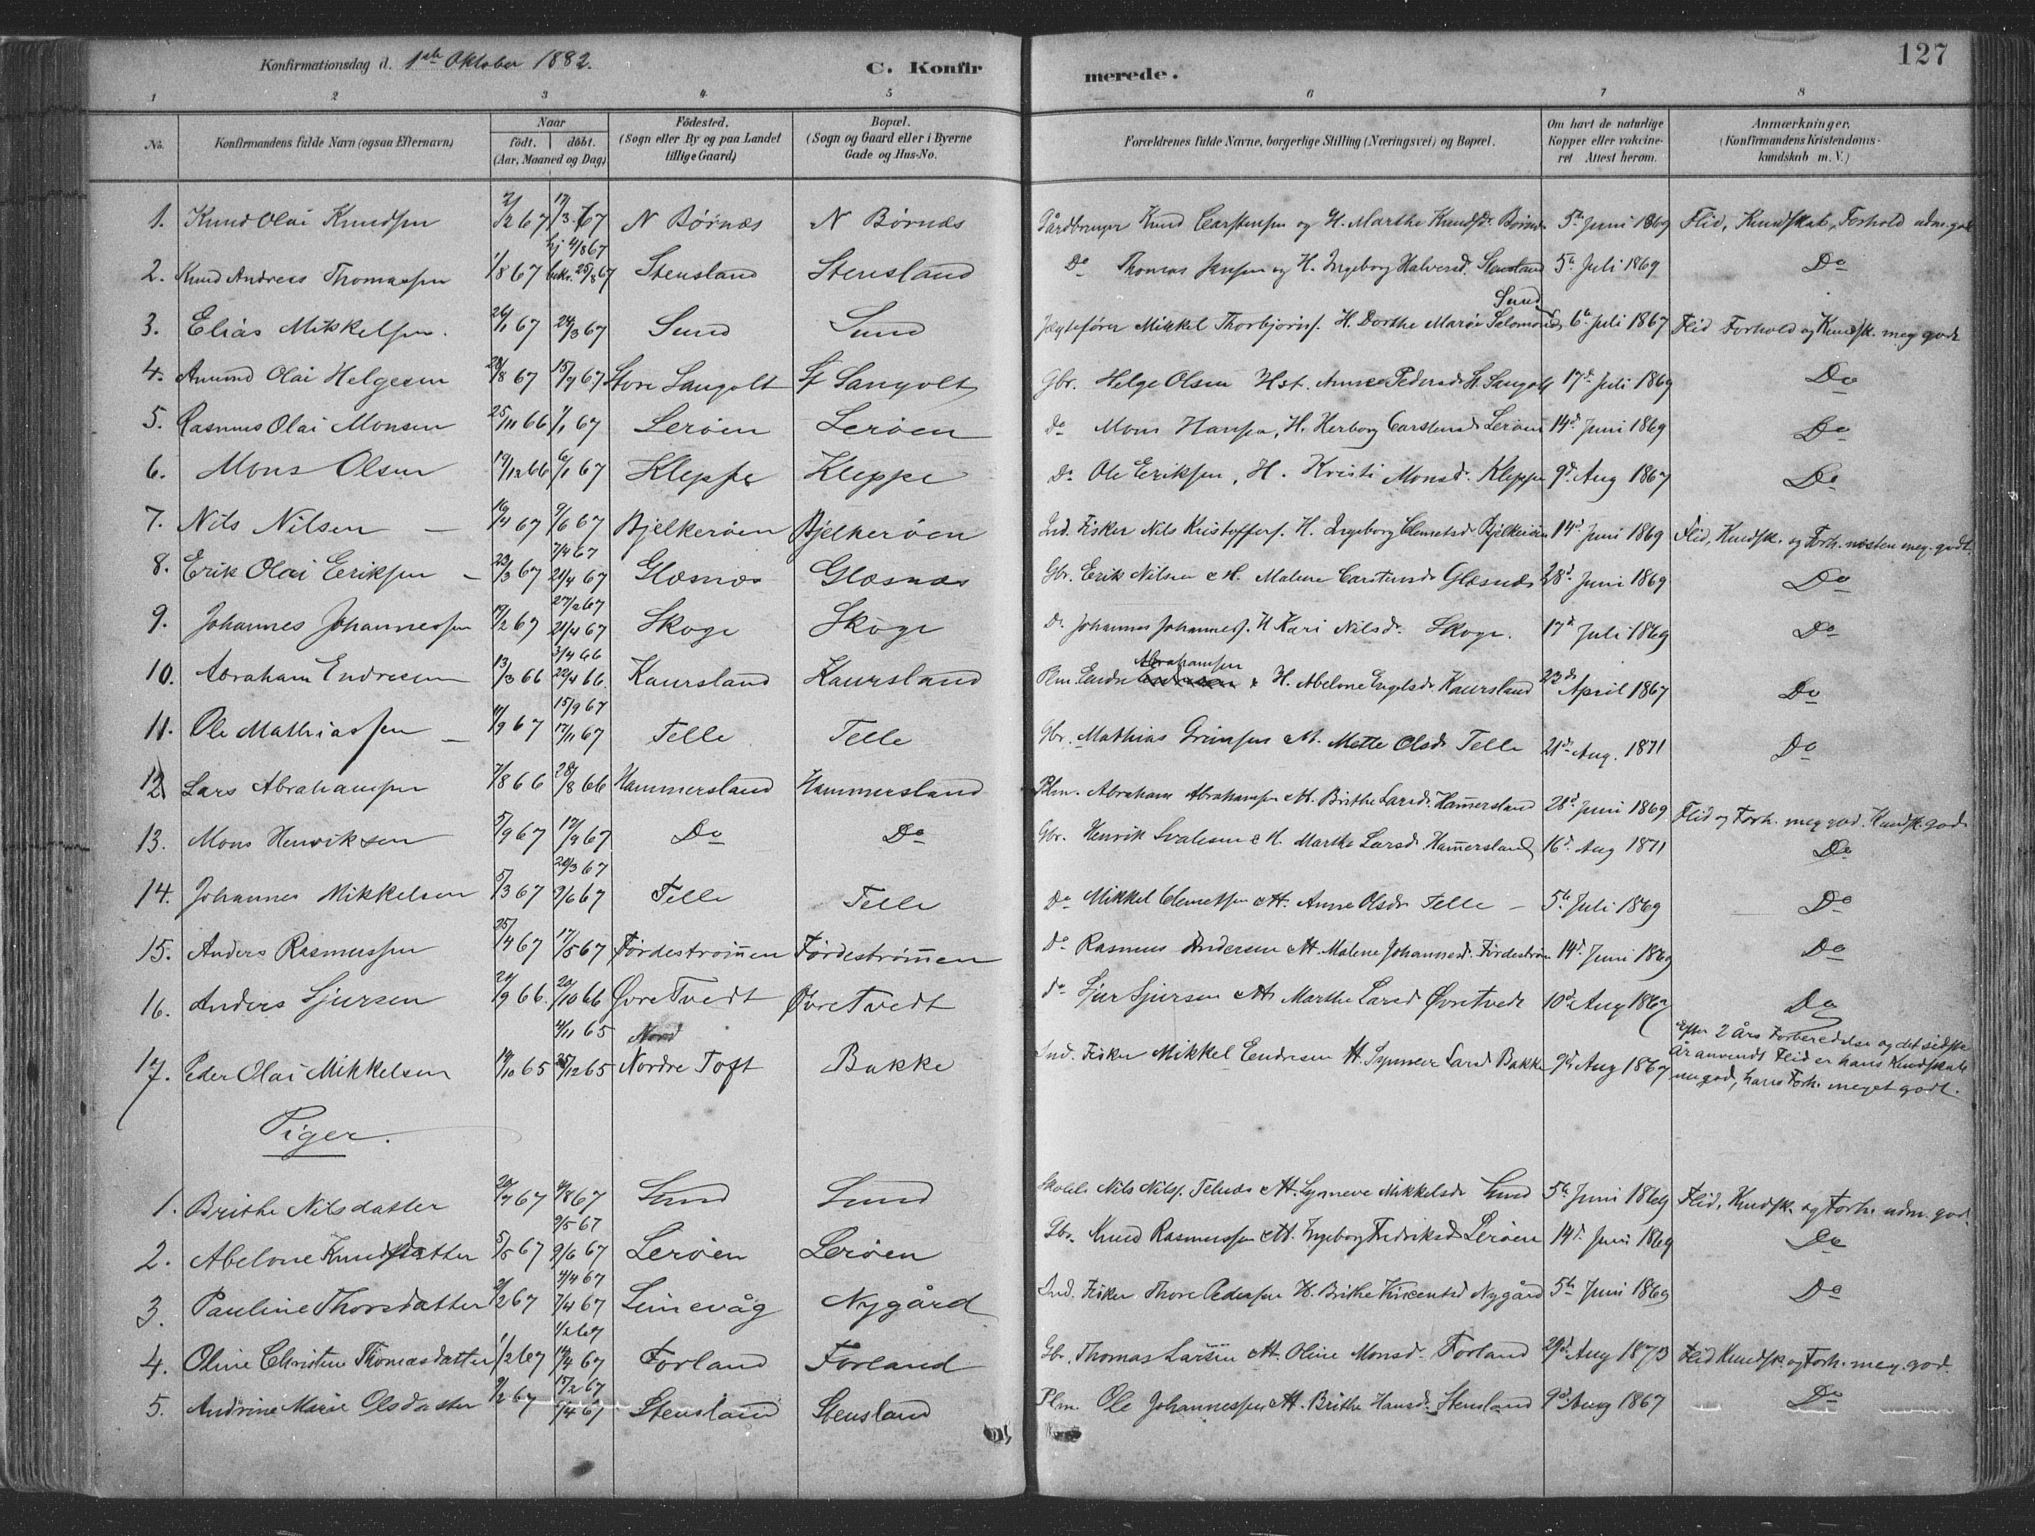 127
Konfirmationsdag d. 1ste Oktober 1882. C. Konfirmerede.
1 2 3 4 5 6 7 8
No. Konfirmandens fulde Navn (ogsaa Efternavn) Naar født. døbt. (Aar, Maaned og Dag) Fødested. (Sogn eller By og paa Landet tillige Gaard) Bopæl. (Sogn og Gaard eller i Byerne Gade og Hus-No. Forældrenes fulde Navne, borgerlige Stilling (Næringsvei) og Bopæl. Om havt de naturlige Kopper eller vakcineret Attest herom. Anmærkninger. (Konfirmandens Kristendomskundskab m. V.)
1. Knud Olai Knudsen 2/2 67 17/3 67 N Børnæs N Børnæs Gårdbruger Knud Carstensen og H. Marthe Knudsd. 5te Juni 1869 Flid, Kundskab, Forhold udm. god
2. Knud Andreas Thomassen 1/8 67 hj 4/8 67 bekr. 25/8 67 Stensland Stensland Do Thomas Jensen og H. Ingeborg Halversd. Stensland 5te Juli 1869 Do
3. Elias Mikkelsen. 26/1 67 24/3 67 Sund Sund Jægtefører Mikkel Thorbjørns. H. Dorthe Marie Salomonsd Sund 6te Juli 1867 Flid Forhold og Kundsk. meg. godt
4. Amund Olai Helgesen 28/8 67 15/9 67 Store Sangolt St Sangolt Gbr. Helge Olsen Hst. Anne Pedersd St. Sangolt 17de Juli 1869 Do
5. Rasmus Olai Monsen 25/11 66 1/1 67 Lerøen Lerøen Do Mons Hansen, H. Herborg Carstensd Lerøen 14de Juni 1869 Do
6. Mons Olsen 19/12 66 6/1 67 Kleppe Kleppe Do Ole Eriksen, H. Kristi Monsd. Kleppe 9de Aug 1867 Do
7. Nils Nilsen — 16/4 67 9/6 67 Bjelkerøen Bjelkerøen Ind. Fisker Nils Kristoffers. H. Ingeborg Clemetsd Bjelkerøen 14de Juni 1869 Flid, Kundsk. og Forh. næsten meg. godt.
8. Erik Olai Eriksen — 23/3 67 7/4 67 21/4 67 Glæsnæs Glæsnæs Gbr. Erik Nilsen & H. Malene Carstensd Glæsnæs 28de Juni 1869 Do
9. Johannes Johannessen 17/2 67 27/2 67 21/4 67 Skoge Skoge Do Johannes Johanness. H Kari Nilsdr. Skoge. 17de Juli 1869 Do
10. Abraham Endresen 13/3 66 3/4 66 22/4 66. Kaursland Kaursland Plm. Endre Abrahamsen & H. Abelone Engelsdr Kaursland 23de April 1867 Do
11. Ole Mathiassen — 11/9 67 15/9 67 17/11 67 Telle Telle Gbr. Mathias Grimsen & H. Mette Olsdr Telle 21de Aug. 1871 Do
12 Lars Abrahamsen 7/8 66 28/8 66 Hammersland Hammersland Plm. Abraham Abrahamsen & H. Brithe Larsdr. Hammersland 28de Juni 1869 Flid og Forh. meg. god. Kundsk. god
13. Mons Henriksen 5/9 67 17/9 67 Do Do Gbr. Henrik & H. Marthe Larsd. Hammersland 16de Aug 1871 Do
14. Johannes Mikkelsen 5/3 67 20/3 67 9/6 67 Telle Telle Do Mikkel Clemetsen & H. Anne Olsdr Telle — 5te Juli 1869 Do
15. Anders Rasmussen 25/4 67 17/5 67 Førdestrømmen Førdestrømmen Do Rasmus Andersen & H. Malene Johannesd. Førdestrøm 14de Juni 1869 Do
16. Anders Sjursen 21/9 66. 20/10 66 Øvre Tvedt Øvre Tvedt do Sjur Sjursen & H. Marthe Larsd Øvre Tvedt 10de Aug 1867 Do
17. Peder Olai Mikkelsen 19/10 65 4/11 65 26/12 65 Nord Nordre Toft Bakke Ind. Fisker Mikkel Endresen H. Synneve Larsd Bakke 9de Aug 1867 Efter 2 års Forberedelse og det sidste År anvendt Flid er hans Kundskab nu god, hans Forh. meget godt.
Piger.
1. Brithe Nilsdatter 20/7 67 4/8 67 Sund Sund Nils Nils. & H. Synneve Mikkelsdr Sund 5te Juni 1869 Flid, Kundsk. og Forh. udm. god.
2. Abelone Knudsdatter 5/5 67 9/5 67 9/6 67 Lerøen Lerøen Gbr. Knud Rasmussen & H. Ingeborg Fredriksd Lerøen 14de Juni 1869 Do
3. Pauline Thorsdatter 2/2 67 4/4 67 7/4 67 Limevåg Nygård Ind. Fisker Thore Pedersen H. Brithe Vincentsd Nygård 5te Juni 1869 Do
4. Oline Christine Thomasdatter 1/2 67 1/2 67 14/4 67 Forland Forland Gbr. Thomas Larsen & H. Oline Monsd. Forland 29de Aug 1873 Flid Kundsk. og Forh. meg. god.
5. Andrine Marie Olsdatter 9/2 67 17/2 67 7/4 67 Stensland Stensland Plm. Ole Johannessen & H. Brithe Hansd. Stensland 9de Aug 1867 Do